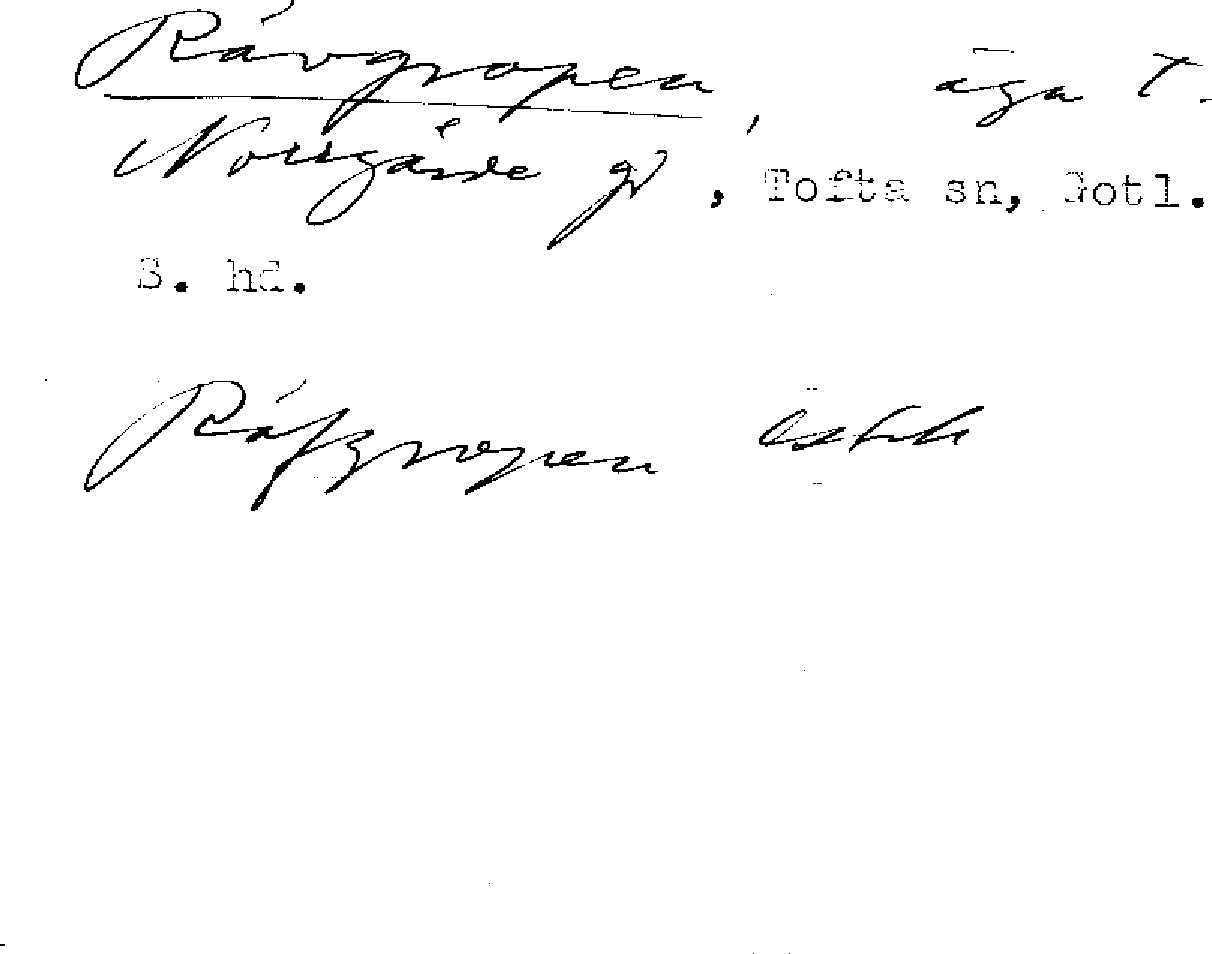 Rävgropen, äga t.
Norrgårde gd, Tofta sn, Gotl.
S. hd.
Räfgropen